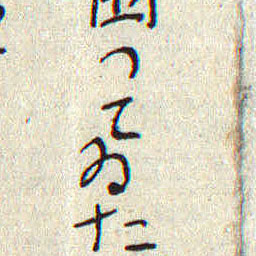 つてゐた